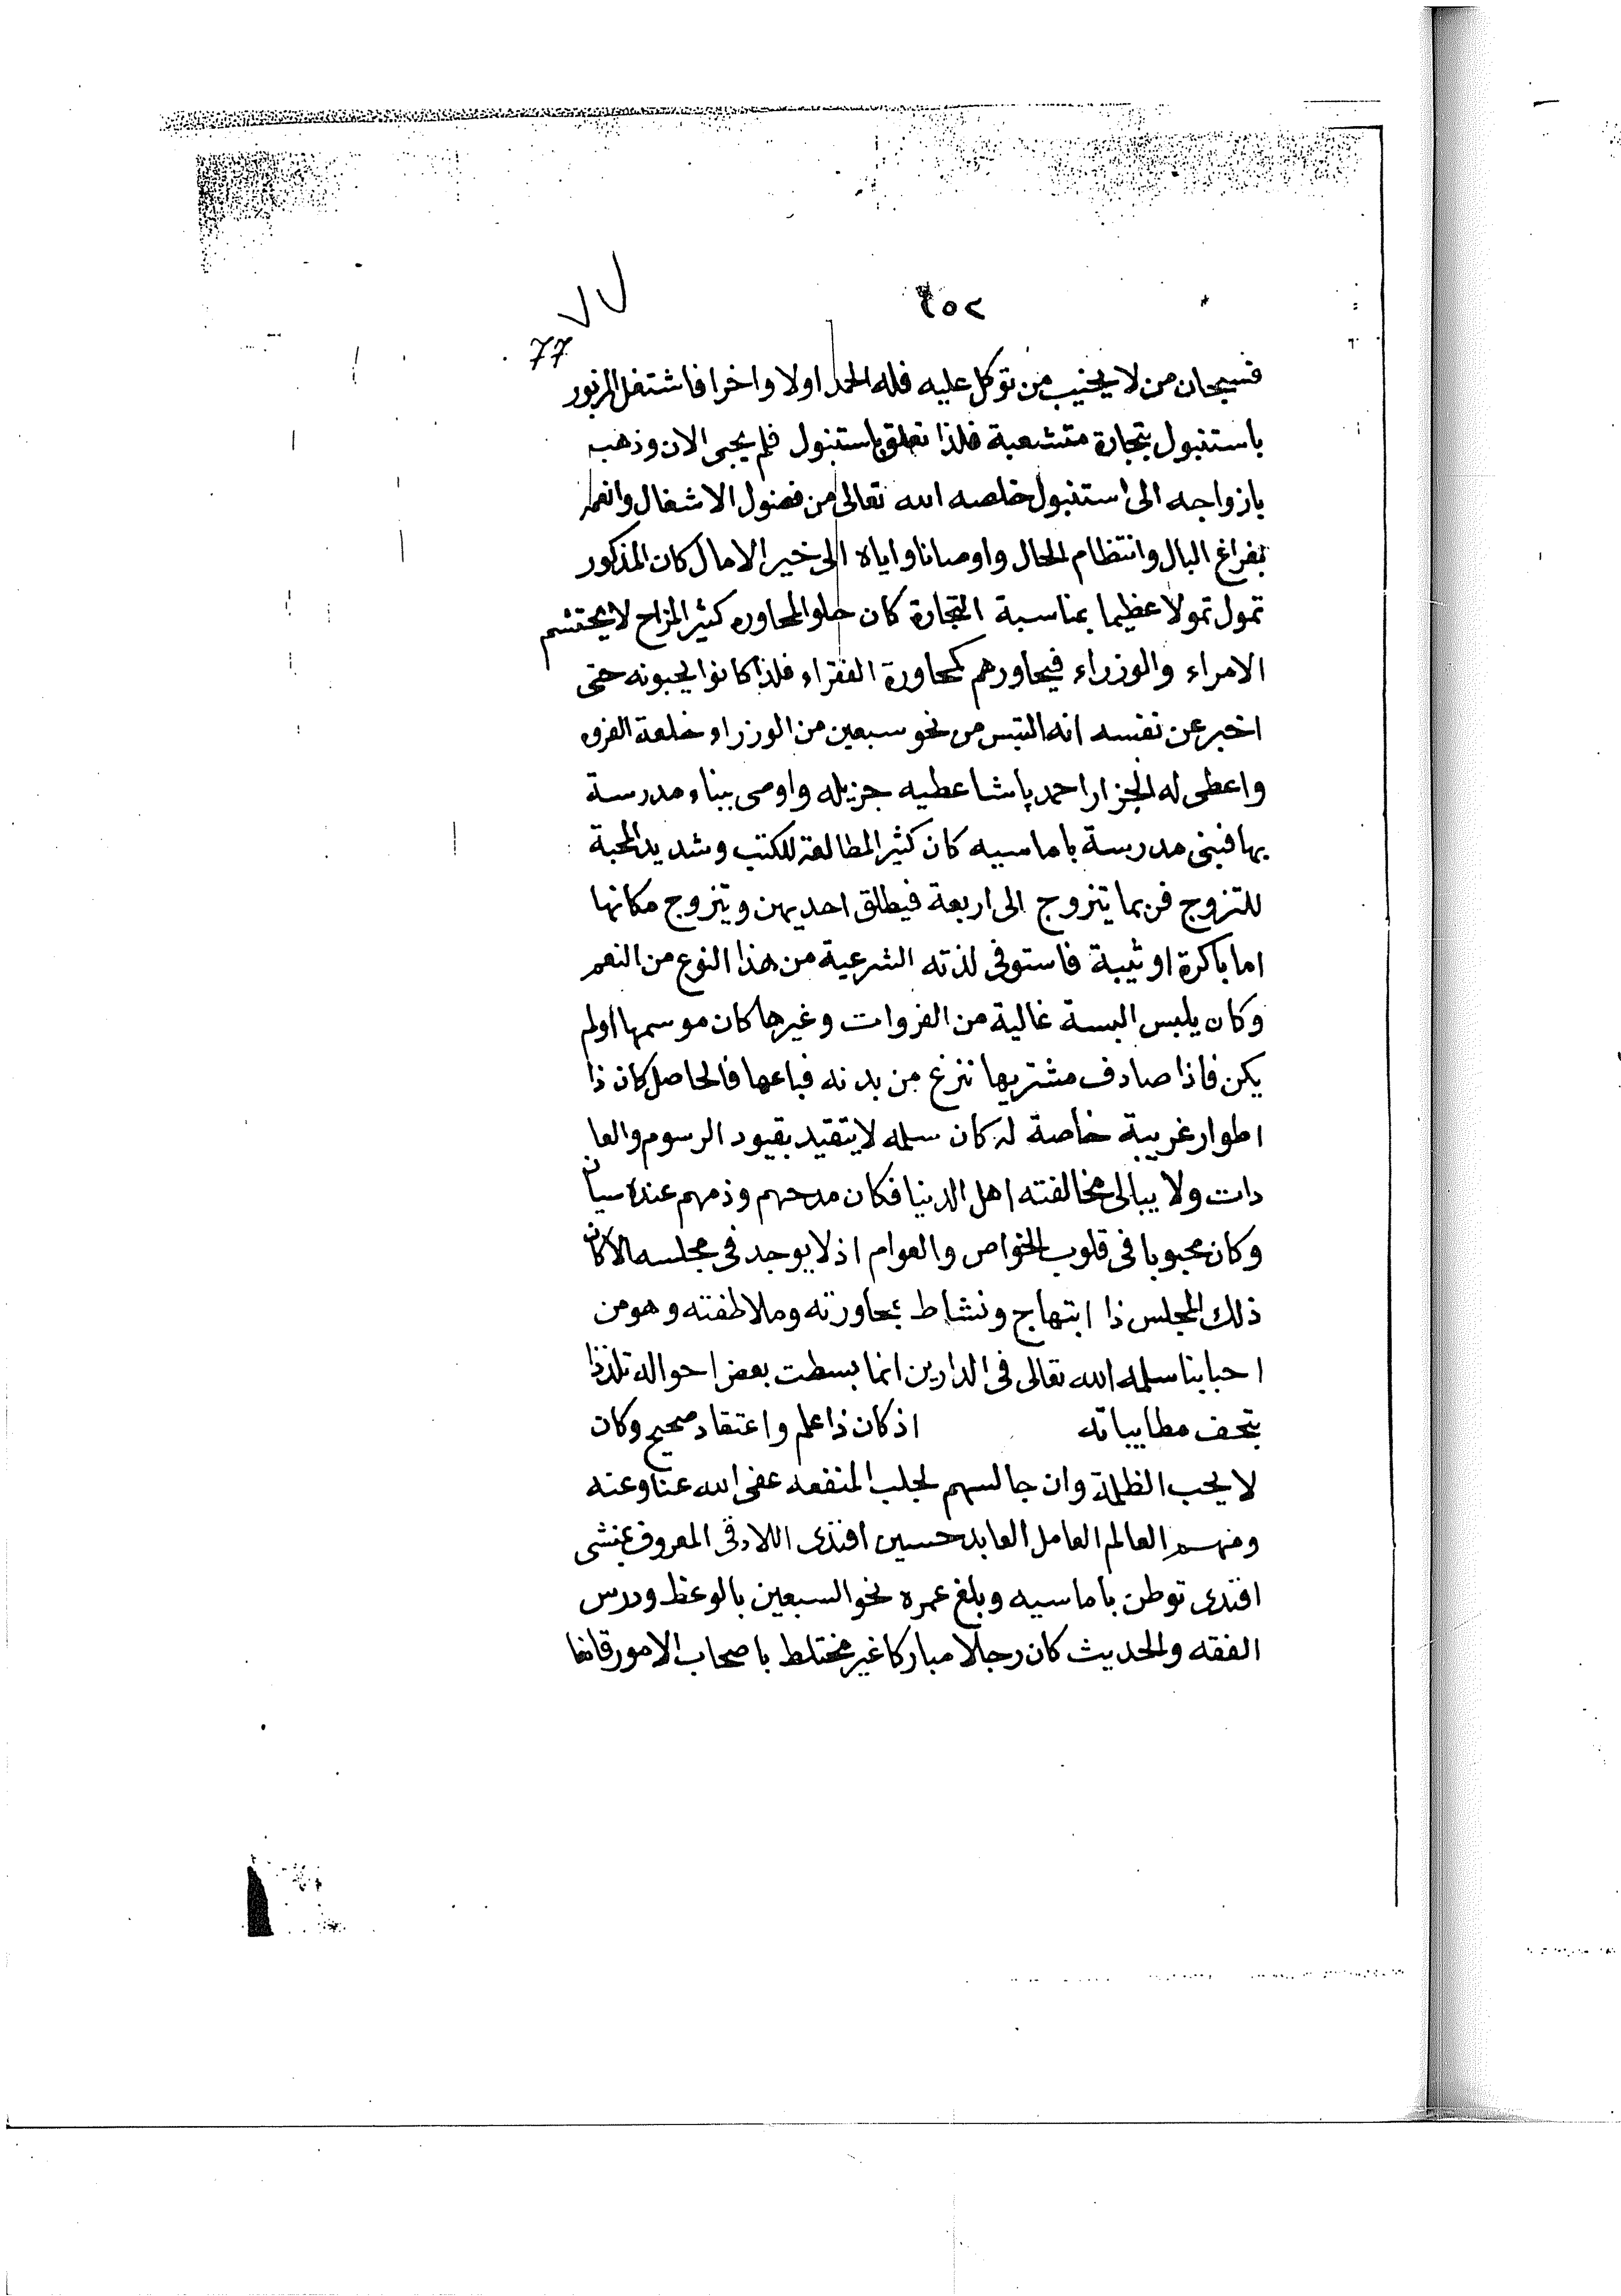 ١٥٢
٧٧
77
فسبحان من لا يخيب من توكل عليه فله الحمد اولا واخرا فاشتغل المزبور
باستنبول بتجارة متشعبة فلذا تعلق باستنبول فلم يجى الان وذهب
بازواجه الى استنبول خلصه الله تعالى من فضول الاشغال وانعمه
بفراغ البال وانتظام الحال واوصانا واياه الى خير الامال كان المذكور
تمول تمولا عظيما بمناسبة التجارة كان حلو المحاوره كثير المزاح لا يحتشم
الامراء والوزراء فيحاورهم كمحاورة الفقراء فلذا كانوا يحبونه حتى
اخبر عن نفسه انه التبس من نحو سبعين من الوزراء خلعة الفرو
واعطى له الجزار احمد پاشا عطيه جزيله واوصى ببناء مدرسة
بها فبنى مدرسة باماسيه كان كثير المطالعة للكتب وشديد المحبة
للتزوج فربما يتزوج الى اربعة فيطلق احديهن ويتزوج مكانها
اما باكرة او ثيبة فاستوفى لذته الشرعية من هذا النوع من النعم
وكان يلبس البسة غالية من الفروات وغيرها كان موسمها اولم
يكن فاذا صادف مشتريها نزع من بدنه فباعها فالحاصل كان ذا
اطوار غريبة خاصة له كان سلمه لا يتقيد بقيود الرسوم والعا
دات ولا يبالى مخالفته اهل الدنيا فكان مدحهم وذمهم عنده سيان
وكان محبوبا فى قلوب الخواص والعوام اذ لا يوجد فى مجلسه الا كان
ذلك المجلس ذا ابتهاج ونشاط بمحاورته وملاطفته وهو من
احبابنا سلمه الله تعالى فى الدارين انما بسطت بعض احواله تلذذا
بتحف مطايباته اذ كان ذا علم واعتقاد صحيح وكان
لا يحب الظلمة وان جالسهم لجلب المنفعه عفى الله عنا وعنه
ومنهم العالم العامل العابد حسين افندى اللادقى المعروف بمنشى
افندى توطن باماسيه وبلغ عمره نحو السبعين بالوعظ ودرس
الفقه والحديث كان رجلا مباركا غير مختلط باصحاب الامور قانعا